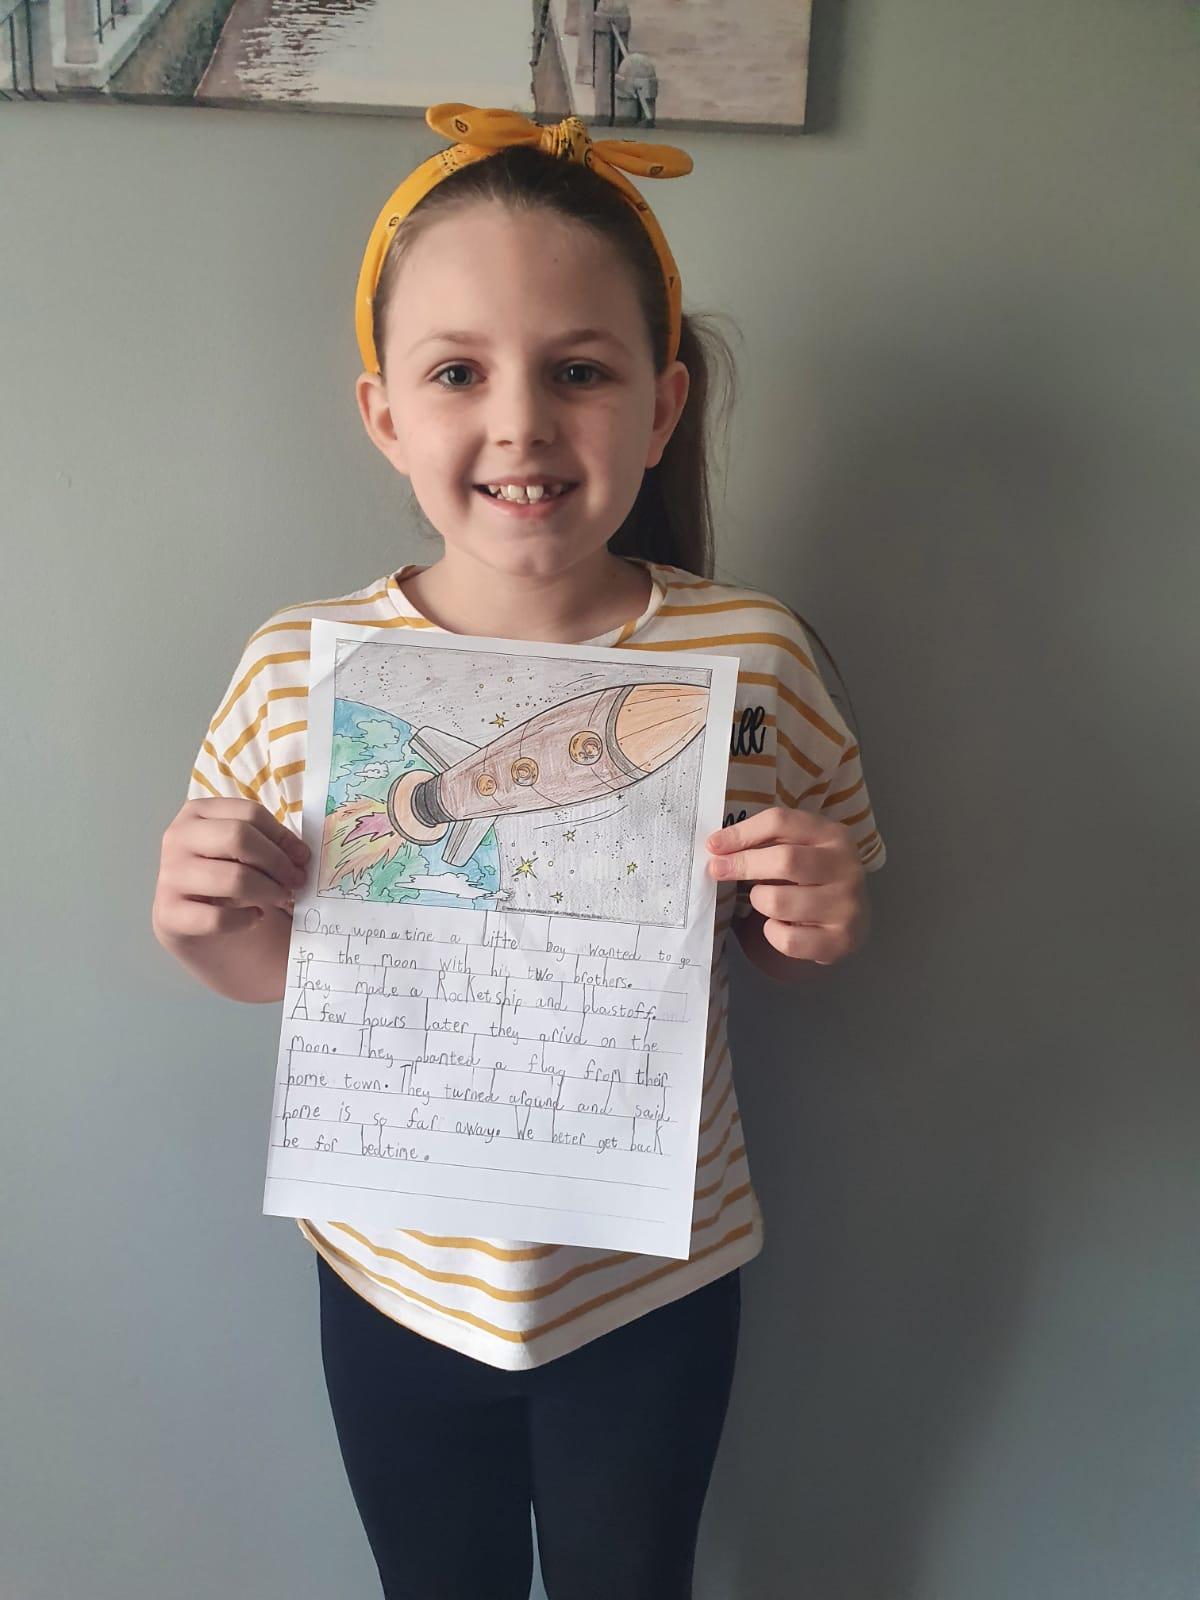 Once upon a time a little boy wanted to go
to the moon with his two brothers.
They made a Rocket ship and blastoff.
A few hours later they arivd on the
moon. They planted a flag from their
home town. They turned around and said
home is so far away. We beter get back
be for bedtime.